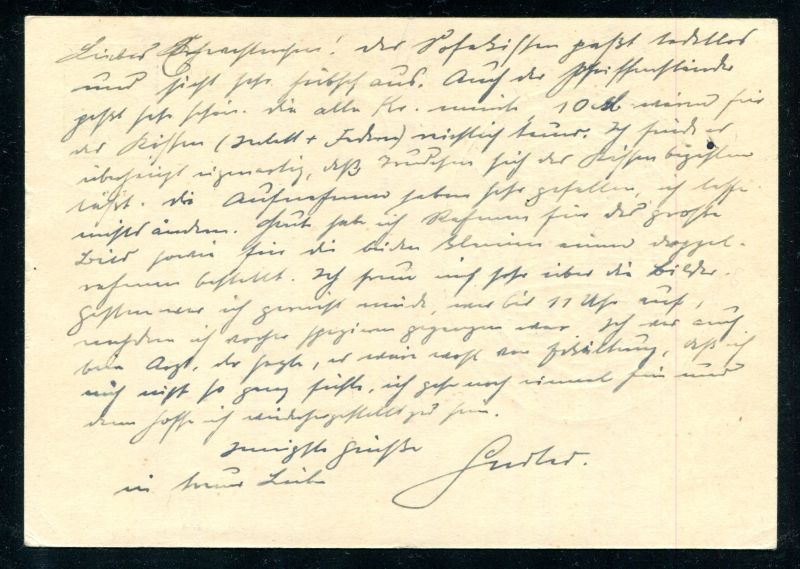 Liebes! Das Sofakissen paßt tadellos
und sieht sehr hübsch aus. Auch der
paßt sehr schön. Die alte Kr. meinte 10 M wären für
das Kissen (Inlett + Federn) reichlich teuer. Ich finde es
überhaupt eigenartig, daß sich das Kissen bezahlen
läßt. Die Aufnahmen haben sehr gefallen, ich lasse
nichts ändern. Heute hab ich Rahmen für das große
Bild sowie für die beiden kleinen einen Doppel-
rahmen bestellt. Ich freue mich sehr über die Bilder.
Gestern war ich gar nicht müde, war bis 11 Uhr auf,
nachdem ich vorher spazieren gegangen war. Ich war auch
beim Arzt, der sagte, es wäre wohl von Erkältung, daß ich
mich nicht so ganz fühle, ich gehe noch einmal hin und
dann hoffe ich wiederhergestellt zu sein.
Innigste Grüße
in treuer Liebe